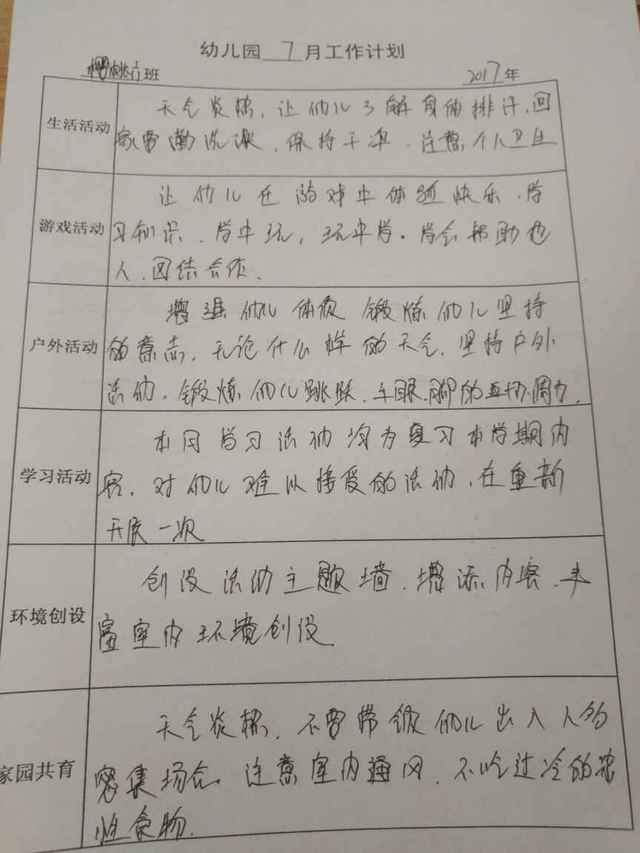 幼儿园 7 月工作计划
樱桃六班 2017年
生活活动
天气炎热，让幼儿了解身体排汗，回
家要勤洗澡，保持干净，注意个人卫生
游戏活动
让幼儿在游戏中体验快乐，学
习知识，学中玩，玩中学。学会帮助他
人，团结合作。
户外活动
增强幼儿体质 锻炼幼儿坚持
的意志，无论什么样的天气，坚持户外
活动，锻炼幼儿跳跃，手眼脚的互协调力。
学习活动
本月学习活动均为复习本学期内
容，对幼儿难以接受的活动，在重新
开展一次
环境创设
创设活动主题墙，增添内容，丰
富室内环境创设
家园共育
天气炎热，不要带领幼儿出入人多
密集场合 注意室内通风，不吃过冷的
性食物